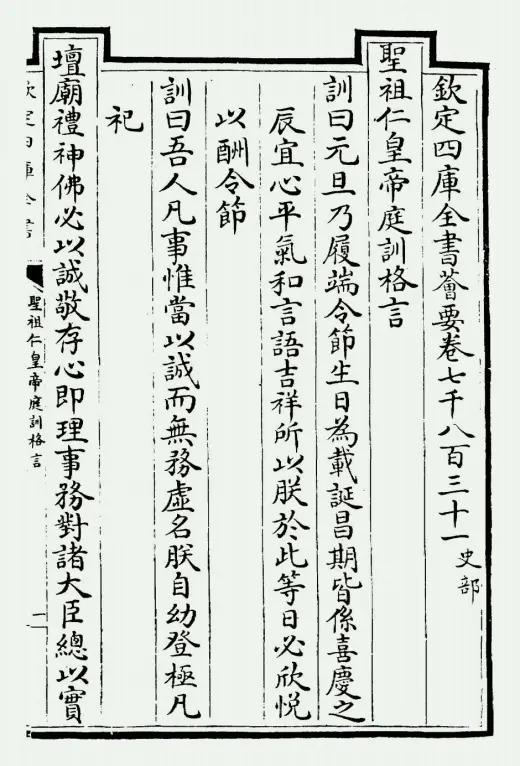 欽定四庫全書薈要卷七千八百三十一 史部
聖祖仁皇帝庭訓格言
訓曰元旦乃履端令節生日為載誕昌期皆係喜慶之
辰宜心平氣和言語吉祥所以朕於此等日必欣悅
以酬令節
訓曰吾人凡事惟當以誠而無務虛名朕自幼登極凡
祀
壇廟禮神佛必以誠敬存心即理事務對諸大臣總以實
欽定四庫全書
聖祖仁皇帝庭訓格言
一